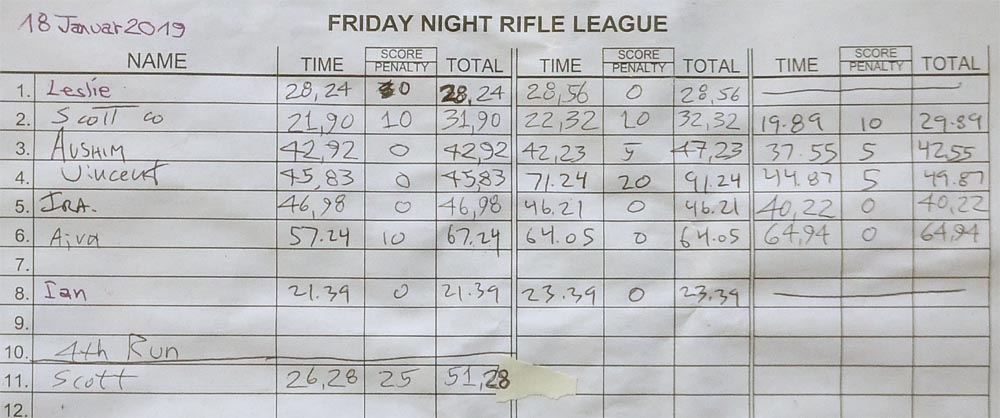 18 Januar 2019 FRIDAY NIGHT RIFLE LEAGUE
NAME TIME SCORE PENALTY TOTAL TIME SCORE PENALTY TOTAL TIME SCORE PENALTY TOTAL
1. Leslie 28,24 0 28,24 28,56 0 28,56
2. Scott co 21,90 10 31,90 22,32 10 32,32 19.89 10 29.89
3. AUSHIM 42,92 0 42,92 42,23 5 47,23 37.55 5 42,55
4. Vincent 45,83 0 45,83 71.24 20 91.24 44.87 5 49.87
5. IRA. 46,98 0 46,98 46.21 0 46.21 40,22 0 40,22
6. Aiva 57.24 10 67.24 64.05 0 64.05 64,94 0 64,94
7.
8. Ian 21.39 0 21.39 23.39 0 23.39
9.
10. 4th Run
11. Scott 26,28 25 51,28
12.